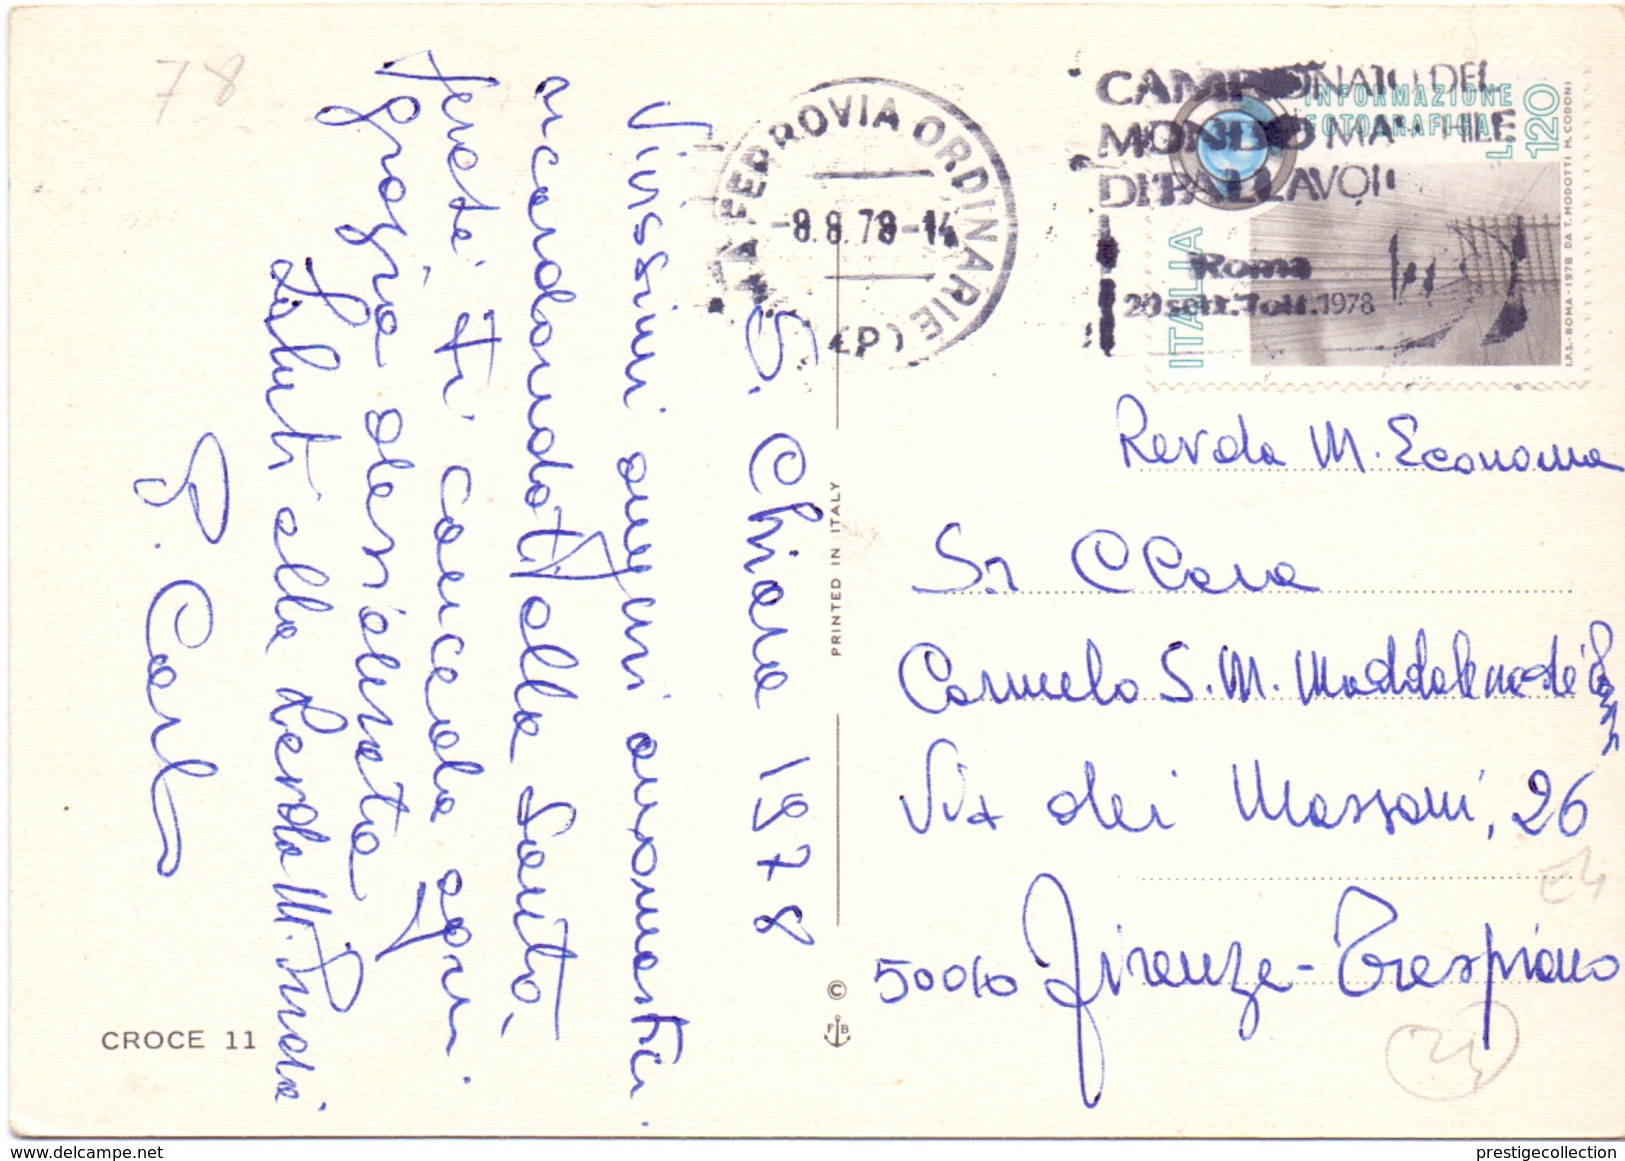 78
S. Chiara 1978
Vivissimi auguri onomastici.
raccomandati alla Santa,
perché ti conceda ogni
grazia desiderata
Saluti alla Revda M.
P. Carlo
CROCE 11
PRINTED IN ITALY
©
F B
FERROVIA ORDINARIE (P)
-8.8.78-14
CAMPIONATI DEL
MONDO MASCHILE
DI PALLAVOLO
Roma
20 sett. 7 ott. 1978
INFORMAZIONE
FOTOGRAFICA
L. 120
ITALIA
I.P.S.-ROMA-1978 DA T. MODOTTI M. CODONI
Revda M. Economa
Sr Clara
Carmelo S. M. Maddalena de' Pazzi
Via dei Massoni, 26
50010 Firenze-Trespiano
www.delcampe.net
prestigecollection